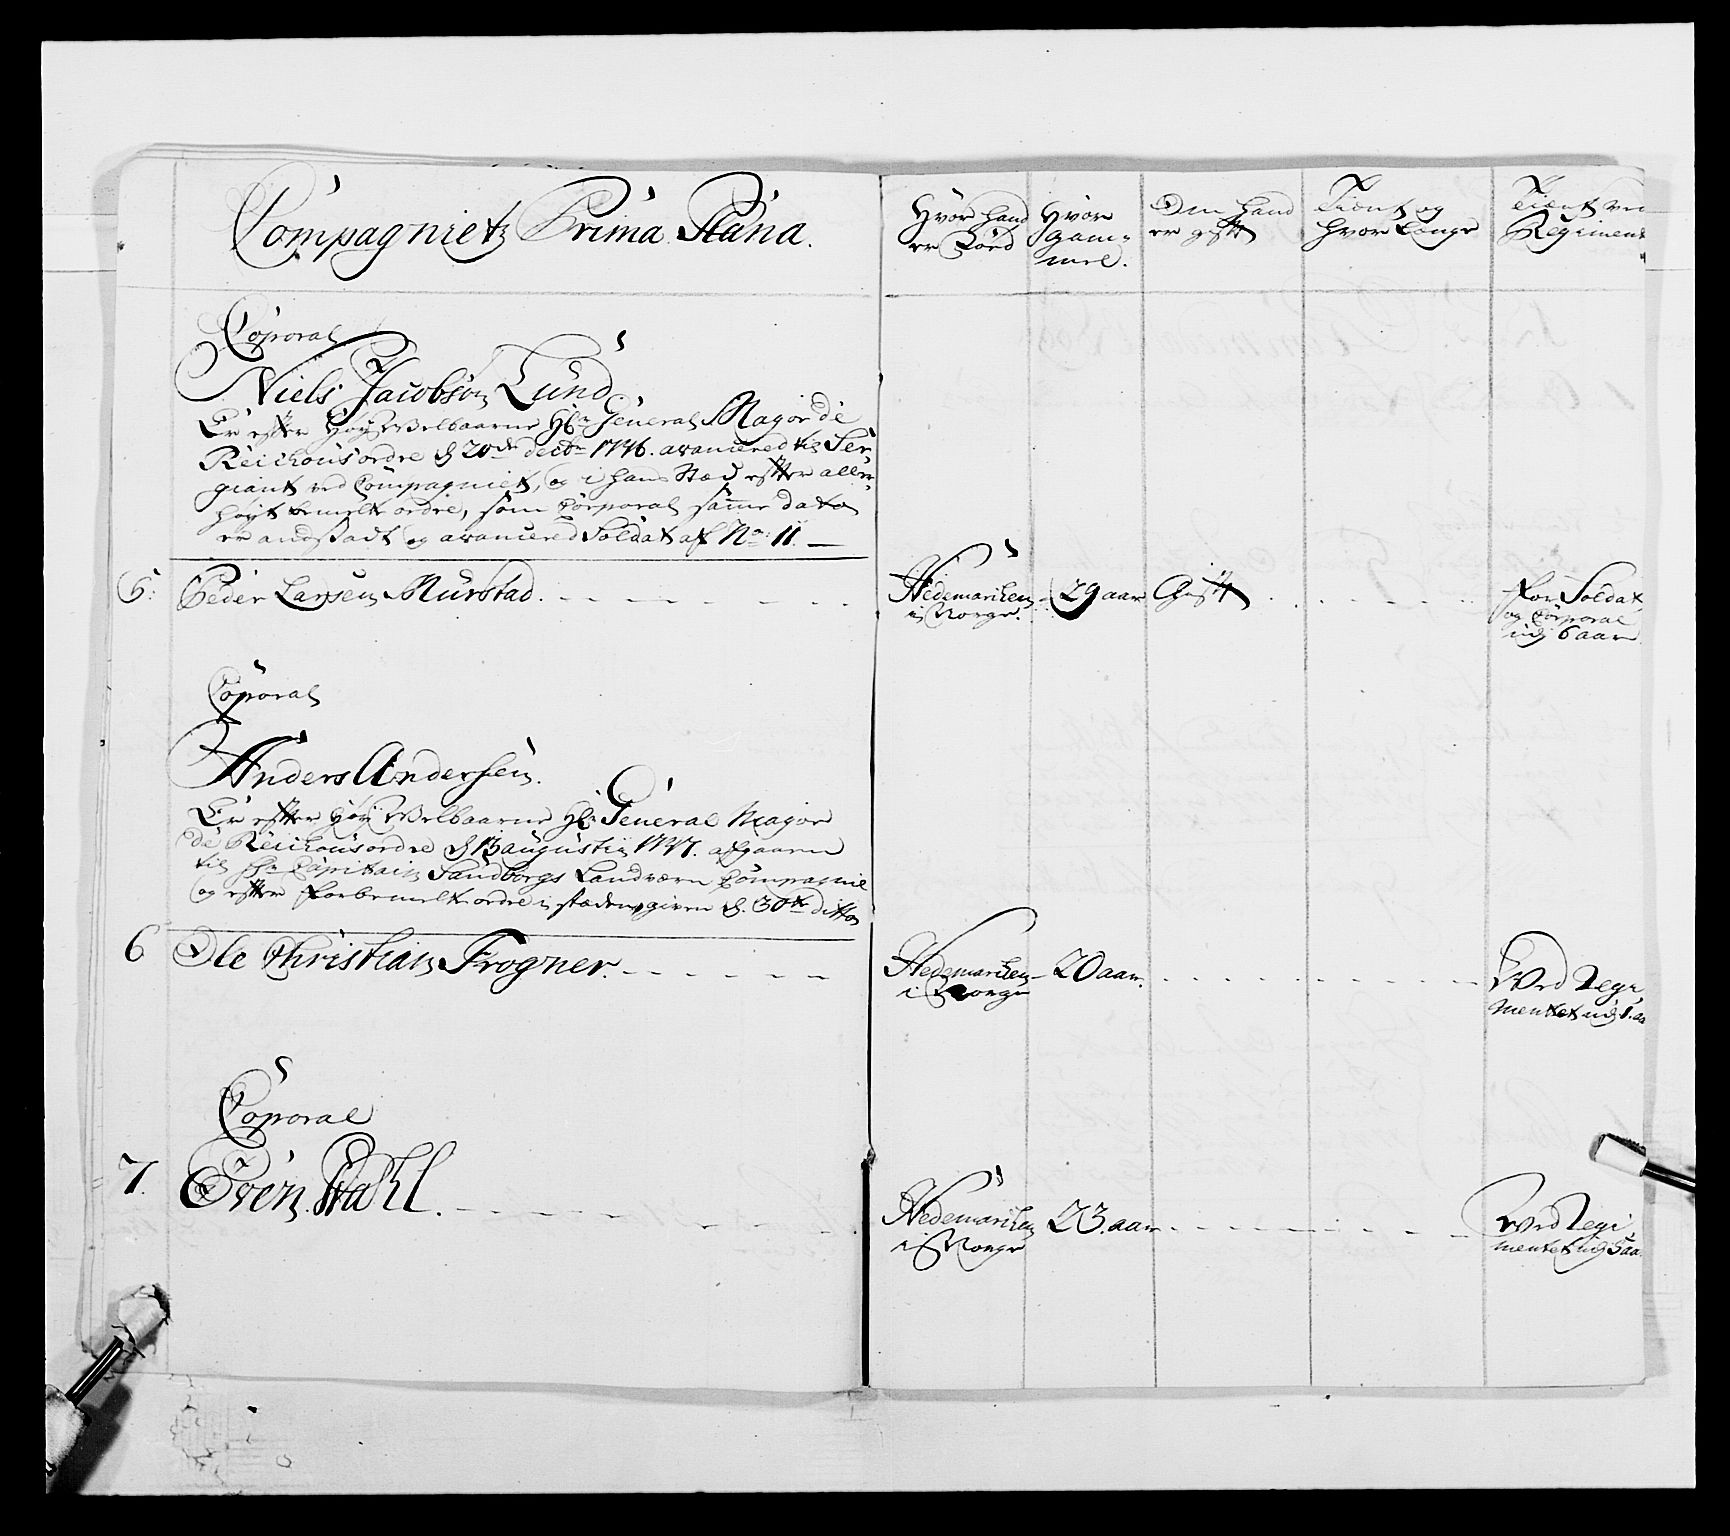 Compagniets Prima Plana.
Hvor hand er Föed
Hvor gam= mel.
Om hand er gift
Tient og hvor Længe
Tient ved Regiment
Corporal
Niels Jacobsön Lund
Er efter Höy Velbaarne Hr General Major de
Reichous ordre d 20de decbr 1746. avancered til Ser=
giant ved Compagniet, og i hans Stæd efter aller=
höyt bemelte ordre, som Corporal samme dato
er andstadt og avancered Soldat af No: 11. —
5: Peder Larsen Murstad. Hedemarken i Norge. 29 aar Gift For Soldat og Corporal udj 6 aar
Corporal
Anders Andersen.
Er efter Höy Velbaarne Hr General Major
de Reichous ordre d 13 augusti 1747. afgaaen
til Hr Capitain Sandborgs Landværn Compagnie
og efter forbemelte ordre i stæden given d. 30te ditto
6 Ole Christian Frogner. Hedemarken i Norge 20 aar. Ved Regi mentet udj 1. aa
Corporal
7. Even Stahl. Hedemarken i Norge 23. aar Ved Regi mentet udj 5 aa